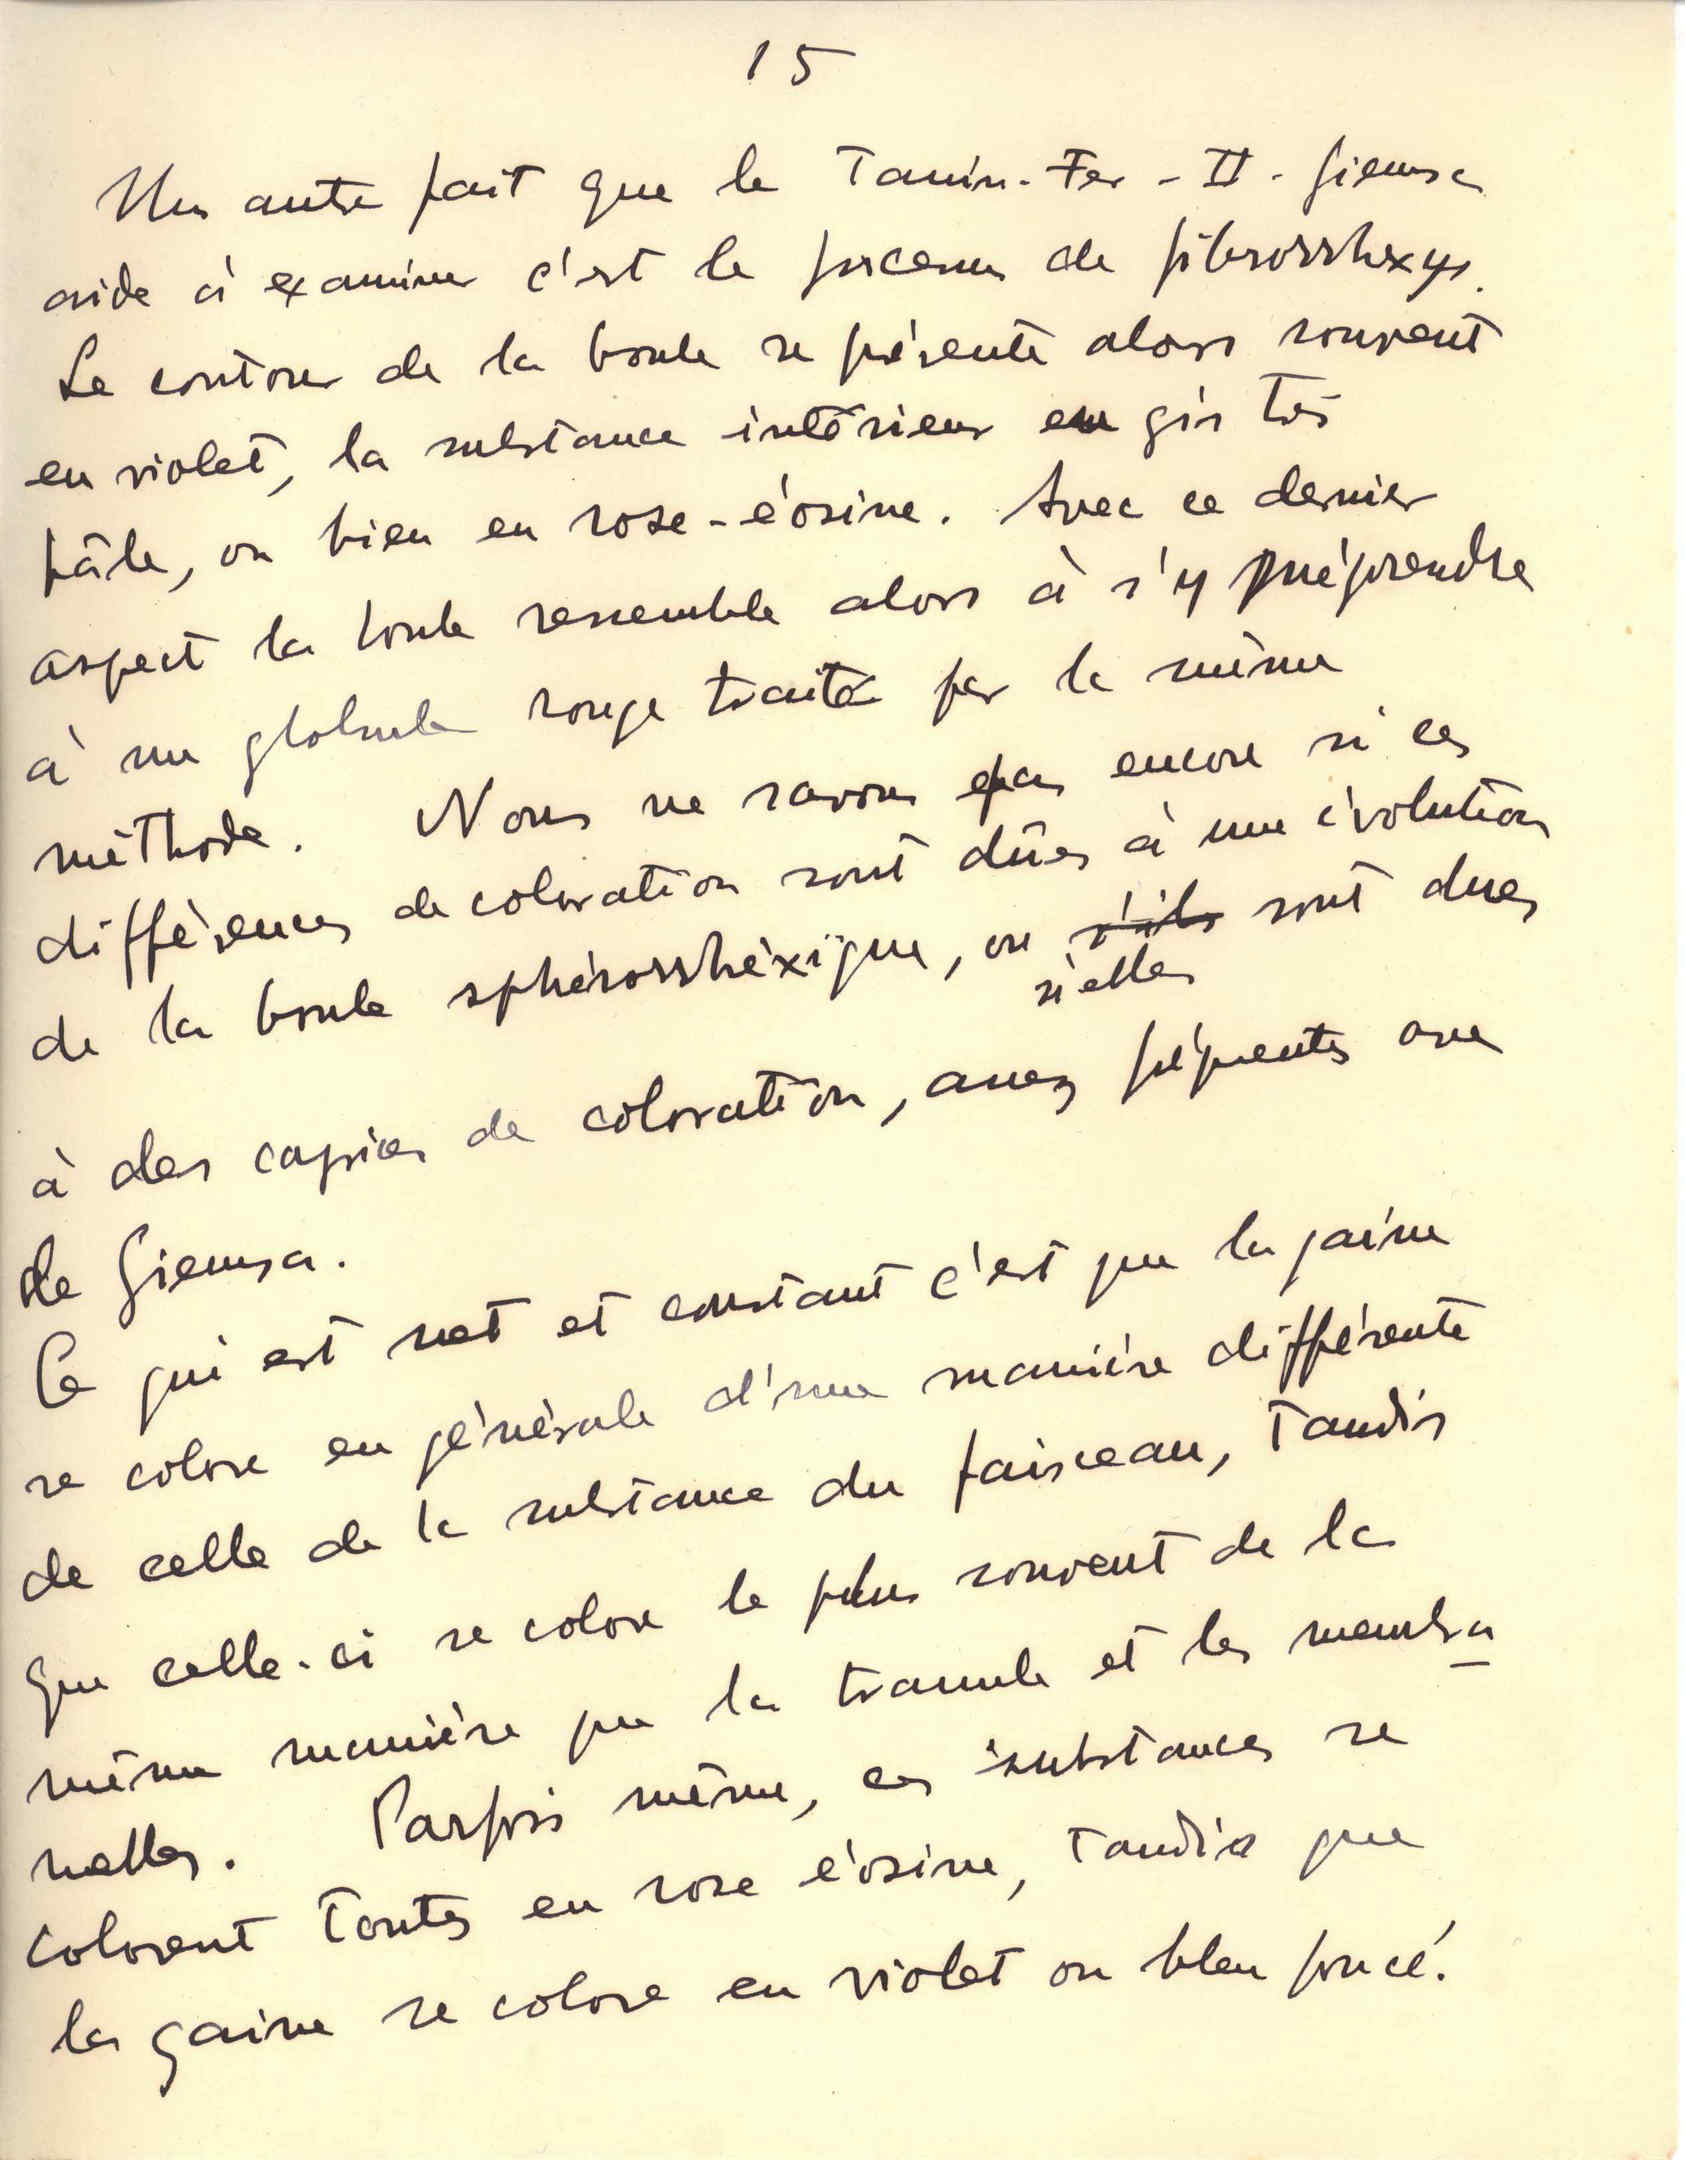 15
Un autre fait que le Tanin-Fer-II-Giemsa
aide à examiner c'est le processus de fibrorrhexys.
Le contour de la boule se présente alors souvent
en violet, la substance intérieur en gris très
pâle, ou bien en rose-éosine. Avec ce dernier
aspect la boule ressemble alors à s'y méprendre
à un globule rouge traité par la même
méthode. Nous ne savons pas encore si ces
différences de coloration sont dûes à une évolution
de la boule sphérorrhéxique, ou s'ils sont dues
si elles
à des caprices de coloration, assez fréquentes avec
le Giemsa.
Ce qui est net et constant c'est que la gaine
se colore en générale d'une manière différente
de celle de la substance du faisceau, tandis
que celle-ci se colore le plus souvent de la
même manière que la trame et les membra
nelles. Parfois même, ces substances se
colorent toutes en rose éosine, tandis que
la gaine se colore en violet ou bleu foncé.